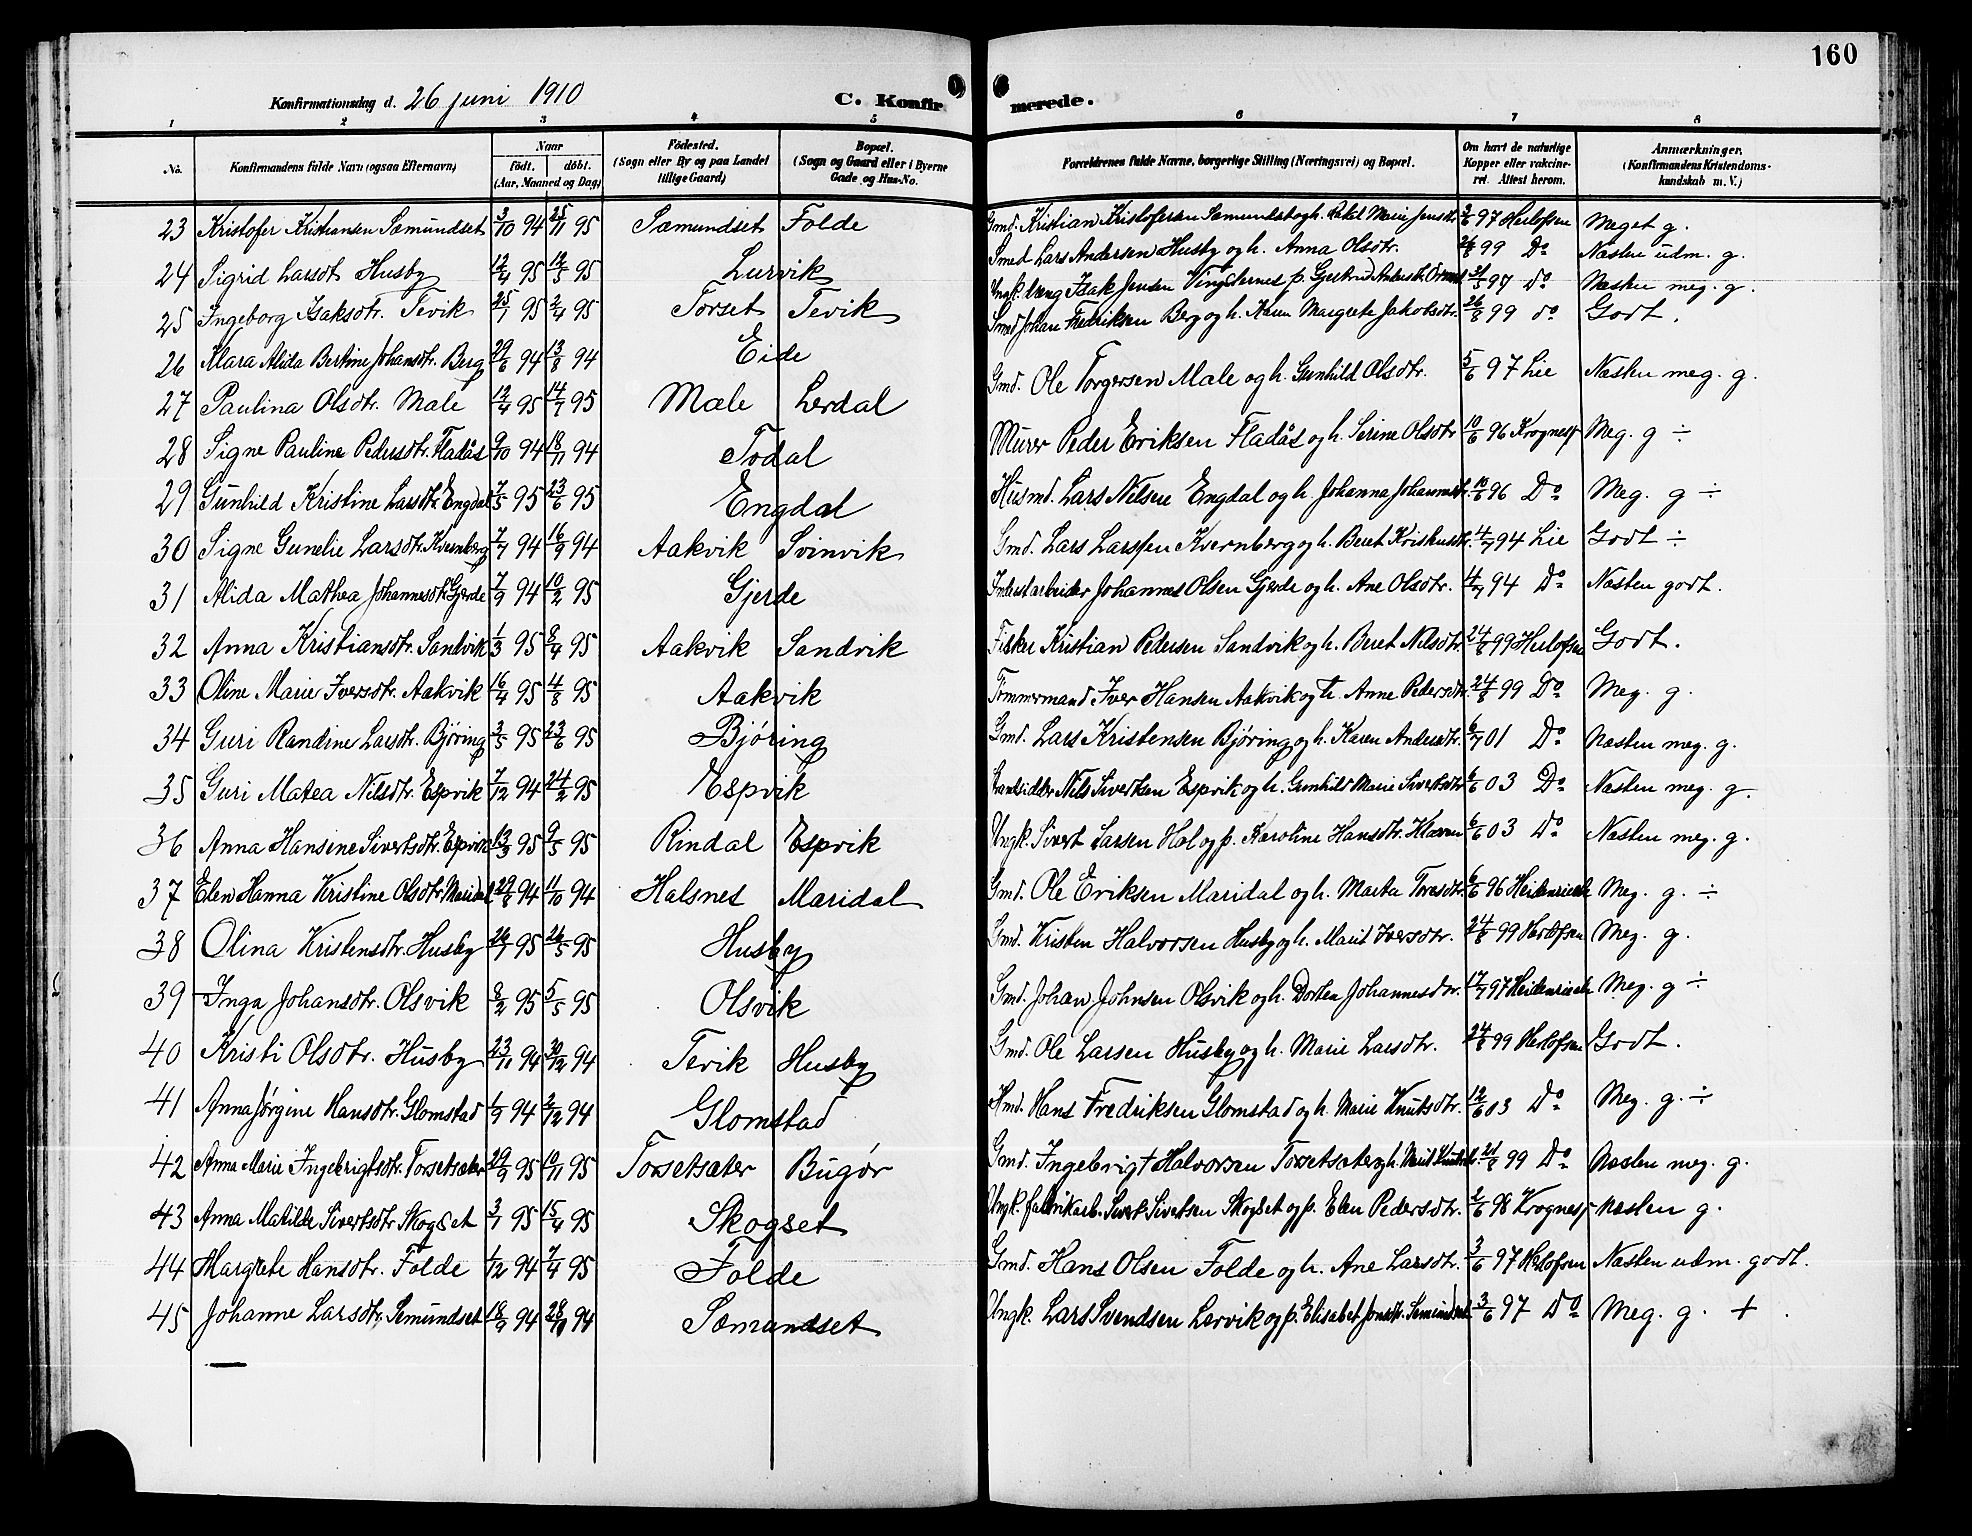 160
Konfirmationsdag d. 26 juni 1910 C. Konfirmerede.
1 2 3 4 5 6 7 8
No. Konfirmandens fulde Navn (ogsaa Efternavn) Naar Födt. döbt. (Aar, Maaned og Dag) Födested. (Sogn eller By og paa Landet tillige Gaard) Bopæl. (Sogn og Gaard eller i Byerne Gade og Hus-No. Forældrenes fulde Navne, borgerlige Stilling (Næringsvei) og Bopæl. Om havt de naturlige Kopper eller vakcineret. Attest herom. Anmærkninger. (Konfirmandens Kristendomskundskab m. V.)
23 Kristofer Kristiansen Sæmundset 3/10 94 25/11 95 Sæmundset Folde Gmd. Kristian Kristofersen Sæmundset og h. Marie Jensdtr. 3/6 97 Herlofsen Meget g.
24 Sigrid Larsdt Husby 12/4 95 12/5 95 Lurvik Smed Lars Andersen Husby og h. Anna Olsdtr. 24/8 99 Do Næsten udm. g.
25 Ingeborg Isaksdtr. Tevik 25/1 95 2/4 95 Torset Tevik Ungk. Isak Jensen Vingsternes p. 97 Do Næsten meg. g.
26 Klara Alida Bertine Johansdtr. Berg 29/6 94 13/8 94 Eide Smed Johan Fredriksen Berg og h. Karen Margrete Jakobsdtr. 26/8 99 do Godt.
27 Paulina Olsdtr. Mæle 12/4 95 14/7 95 Mæle Lerdal Gmd. Ole Torgersen Mæle og h. Gunhild Olsdtr. 5/6 97 Lie Næsten meg. g.
28 Signe Pauline Pedersdtr. Fladås 9/10 94 18/11 94 Todal Murer Peder Eriksen Fladås og h. Serine Olsdtr 10/6 96 Krognesj Meg. g ÷
29 Gunhild Kristine Larsdtr. Engdal 7/5 95 23/6 95 Engdal Husmd. Lars Nilsen Engdal og h. Johanna Johannesdtr. 10/6 96 Do Meg. g ÷
30 Signe Gunelie Larsdtr. Kvernberg 7/7 94 16/9 94 Aakvik Svinvik Gmd. Lars Larssen Kvernberg og h. Beret 4/7 94 Lie Godt ÷
31 Alida Mathea Johannesdt. Gjerde 7/9 94 10/2 95 Gjerde Johannes Olsen Gjerde og h. Ane Olsdtr. 4/7 94 Do Næsten godt.
32 Anna Kristiansdtr. Sandvik 1/3 95 8/4 95 Aakvik Sandvik Fisker Kristian Pedersen Sandvik og h. Beret Nilsdtr. 24/8 99 Herlofsen Godt.
33 Oline Marie Iversdtr. Aakvik 16/4 95 4/8 95 Aakvik Tømmermand Iver Hansen Aakvik og h. Anne Pedersdtr. 24/8 99 Do Meg. g.
34 Guri Randine Larsdtr. Bjøring 3/5 95 23/6 95 Bjøring Gmd. Lars Kristensen Bjøring og h. Karen Andersdtr. 6/7 01 Do Næsten meg. g.
35 Guri Matea Nilsdtr. Espvik 7/12 94 24/2 95 Espvik Strandsidder Nils Sivertsen Espvik og h. Gunhild Marie Sivertsdtr. 6/6 03 Do Næsten meg. g.
36 Anna Hansine Sivertsdtr. Espvik 13/3 95 9/5 95 Rindal Espvik Ungk. Sivert Larsen Hol og p. Karoline Hansdtr. 6/6 03 Do Næsten meg. g.
37 Elen Hanna Kristine Olsdtr. Maridal 29/8 94 11/10 94 Halsnes Maridal Gmd. Ole Eriksen Maridal og h. Marta Toresdtr. 6/6 96 Meg. g. ÷
38 Olina Kristensdtr. Husby 26/4 95 26/5 95 Husby Gmd. Kristen Halvorsen Husby og h. Marit Iversdtr. 24/8 99 Herlofsen Meg. g.
39 Inga Johansdtr. Olsvik 8/2 95 5/5 95 Olsvik Gmd. Johan Johnsen Olsvik og h. Dorthea Johannesdtr. 17/7 97 Meg. g ÷
40 Kristi Olsdtr. Husby 23/11 94 30/12 94 Tevik Husby Gmd. Ole Larsen Husby og h. Marie Larsdtr. 24/8 99 Herlofsen Godt.
41 Anna Jørgine Hansdtr. Glomstad 1/9 94 2/12 94 Glomstad Hmd. Hans Fredriksen Glomstad og h. Marie Knutsdtr. 12/6 03 Do Meg. g. ÷
42 Anna Marie Ingebrigtsdtr. Torsetsæter 29/9 95 10/11 95 Torsetsæter Bugør Gmd. Ingebrigt Halvorsen Torsetsæter og h. Marit 21/8 99 Do Næsten meg. g.
43 Anna Matilde Sivertsdtr Skogset 3/1 95 15/4 95 Skogset Ungk. fabrikarb. Sivert Sivertsen Skogset og p. Elen Pedersdtr. 2/6 98 Krognesj Næsten g.
44 Margrete Hansdtr. Folde 1/12 94 7/4 95 Folde Gmd. Hans Olsen Folde og h. Ane Larsdtr. 3/6 97 Herlofsen Næsten udm. godt.
45 Johanne Larsdtr. Semundset 18/9 94 28/10 94 Sæmundset Ungk. Lars Svendsen Lervik og p. Elisabet Jonsdtr. Semundset 3/6 97 Do Meg. g. +